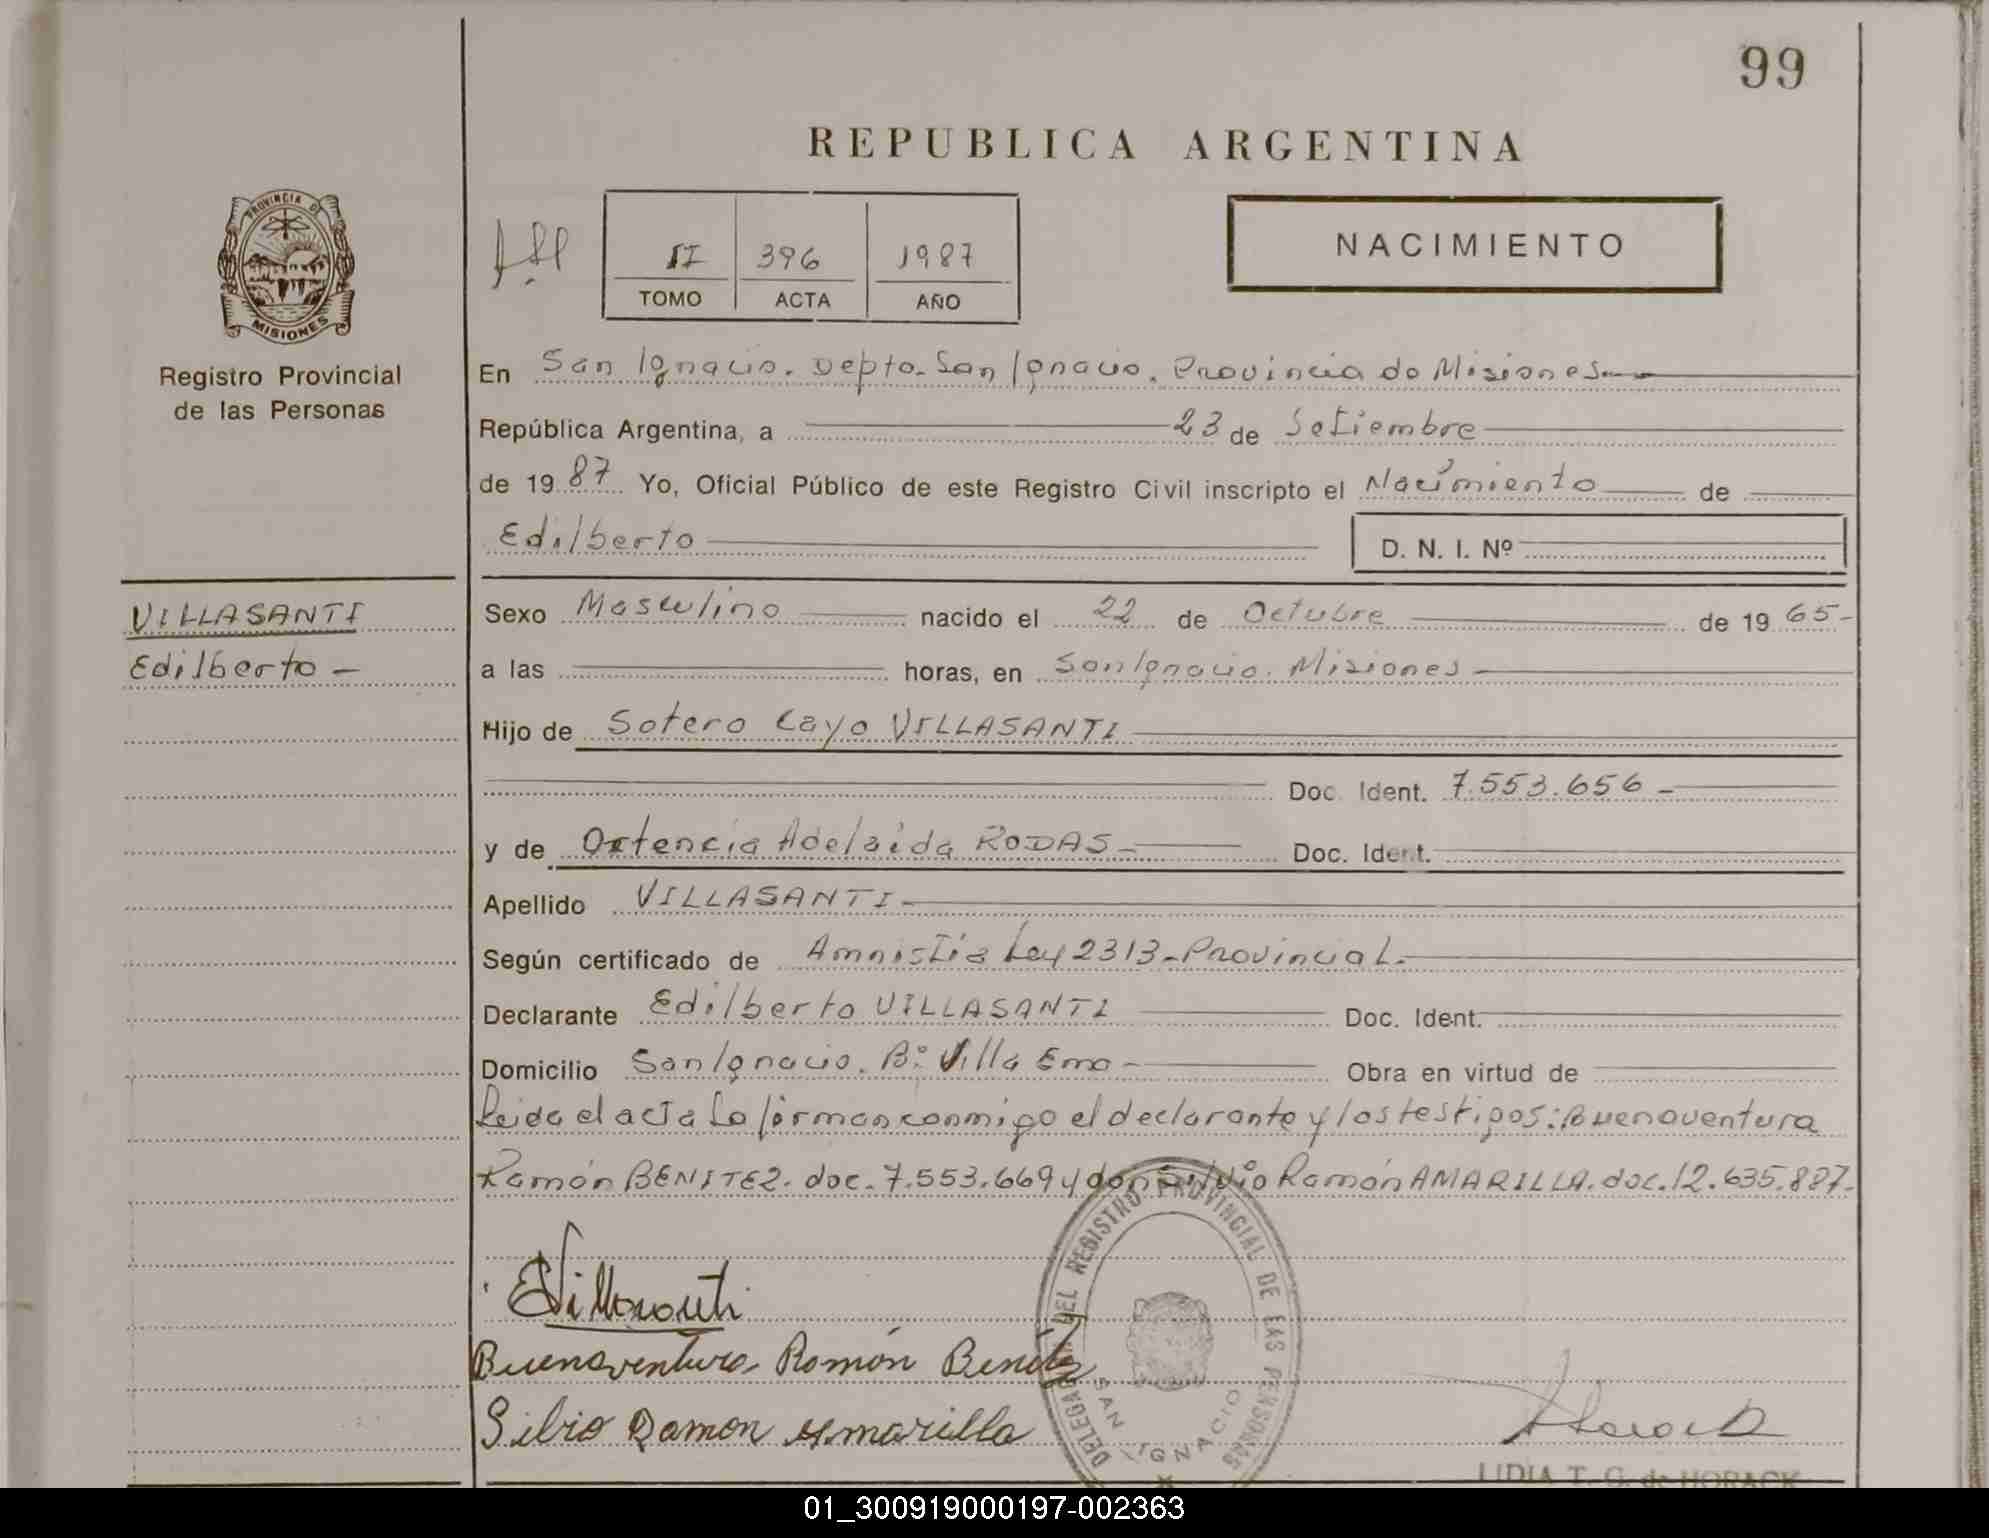 99
REPUBLICA ARGENTINA
PROVINCIA DE
MISIONES
Registro Provincial
de las Personas
II 396 1987
TOMO ACTA AÑO
NACIMIENTO
En San Ignacio. Depto. San Ignacio. Provincia de Misiones.-
República Argentina, a 23 de Setiembre
de 1987 Yo, Oficial Público de este Registro Civil inscripto el Nacimiento de
Edilberto D. N. I. Nº
VILLASANTI
Edilberto -
Sexo Masculino nacido el 22 de Octubre de 1965-
a las horas, en San Ignacio. Misiones -
Hijo de Sotero Cayo VILLASANTI
Doc. Ident. 7.553.656 -
y de Ortencia Adelaida RODAS - Doc. Ident.
Apellido VILLASANTI -
Según certificado de Amnistía Ley 2313-Provincial.-
Declarante Edilberto VILLASANTI Doc. Ident.
Domicilio San Ignacio. Bº Villa Ema - Obra en virtud de
Leida el acta la firman conmigo el declarante y los testigos: Buenaventura
Ramón BENITEZ. doc. 7.553.669 y don Silvio Ramón AMARILLA. doc. 12.635.887.
EVillasanti
Buenaventura Ramón Benítez
Silvio Ramon Amarilla
DELEGACION DEL REGISTRO PROVINCIAL DE LAS PERSONAS
SAN IGNACIO
LIDIA T. G. de HORACK
01_300919000197-002363